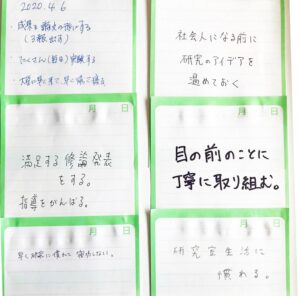 2020.4.6
(3報出す)
・たくさん(毎日)実験する
社会人になる前に
研究のアイデアを
温めておく
月 日
満足する修論発表
をする。
指導をがんばる。
月 日
目の前のことに
丁寧に取り組む。
月 日
早く研究に慣れて
月 日
研究室生活に
慣れる。